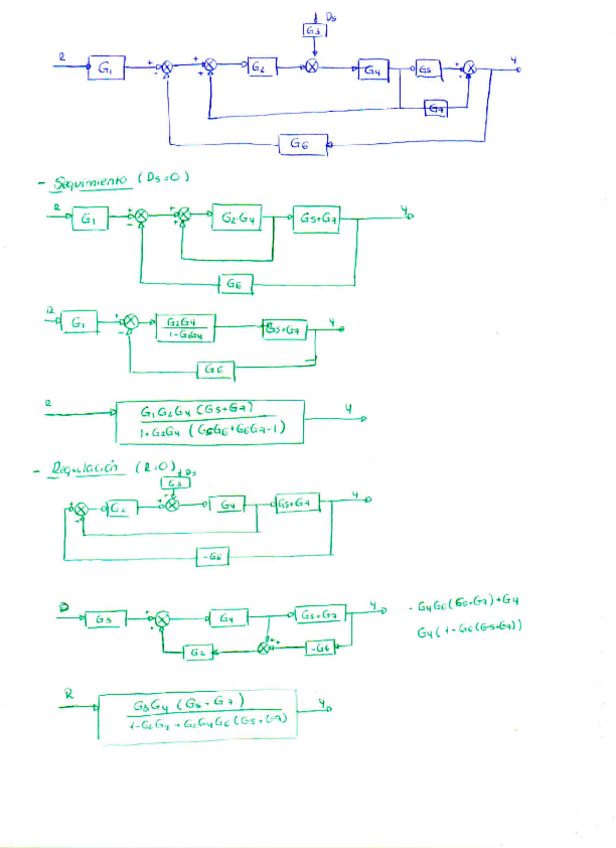 Ds
G3
R G1 + - + + G2 G4 G5 + + Y
G7
G6
- Seguimiento (Ds=0)
R G1 + - + + G2·G4 G5+G7 Y
G6
R G1 + - G2G4 G5+G7 Y
1-G2G4
G6
R G1G2G4(G5+G7) Y
1+G2G4(G5G6+G6G7-1)
- Regulación (R=0) Ds
G3
G2 + + G4 G5+G7 Y
-G6
D G3 + + G4 G5+G7 Y - G4G6(G5+G7)+G4
G2 + + -G6 G4(1-G6(G5+G7))
R G3G4(G5+G7) Y
1-G2G4+G2G4G6(G5+G7)